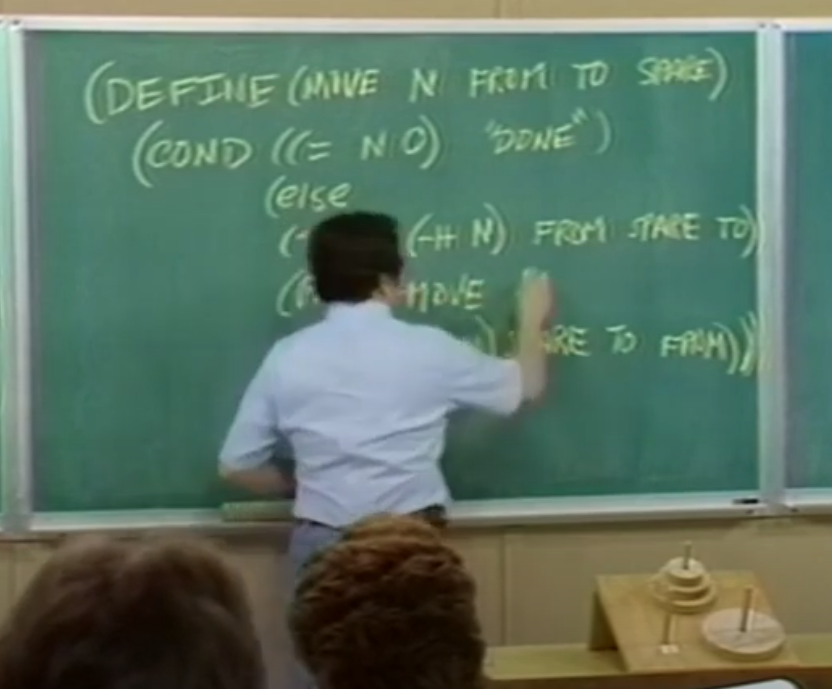 (DEFINE (MOVE N FROM TO SPARE)
(COND ((= N 0) "DONE")
(else
(-1+ N) FROM SPARE TO)
MOVE
SPARE TO FROM))))